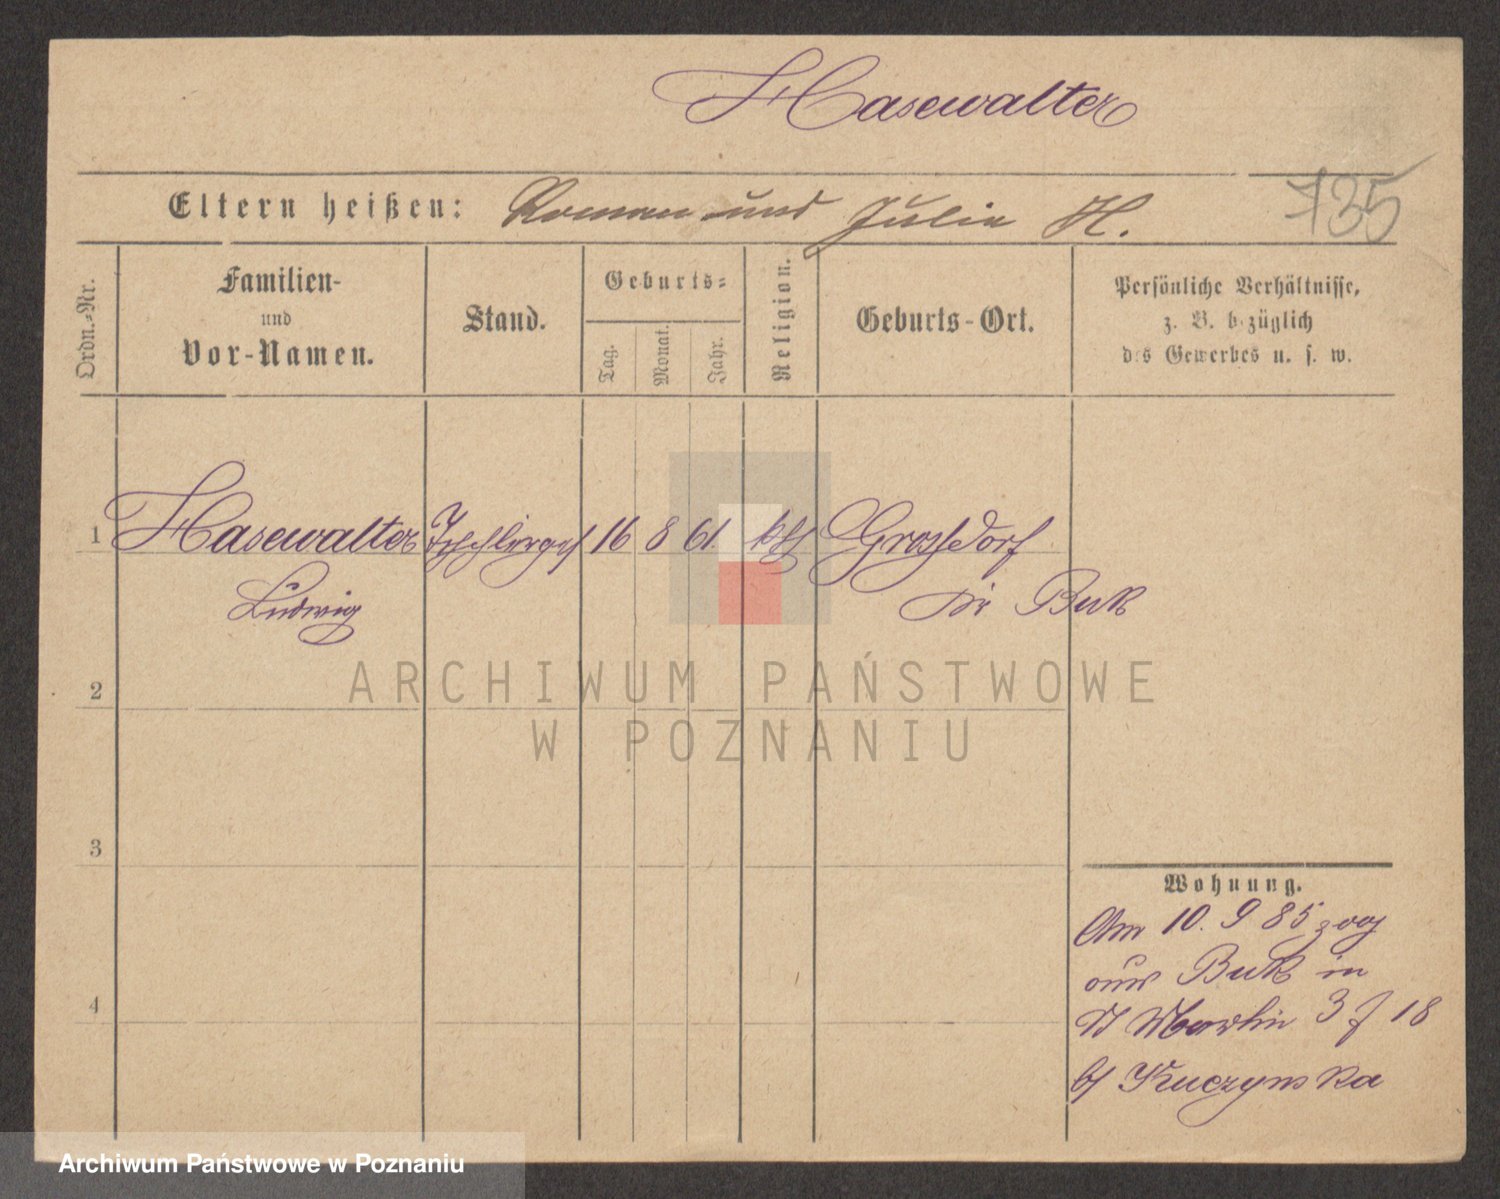 Hasewalter
Eltern heißen: Roman und Julie H.
735
Ordn.-Nr.
Familien-
und
Vor-Namen.
Stand.
Geburts-
Tag.
Monat.
Jahr.
Religion.
Geburts-Ort.
Persönliche Verhältnisse,
z. B. bezüglich
des Gewerbes u. s. w.
1 Hasewalter 16 8 61. kth Grossdorf
Ludwig Kr Buk
2
3
4
Wohnung.
Am 10. 9 85 zog
aus Buk in
St Martin 3 f 18
b/ Kuczynska
ARCHIWUM PAŃSTWOWE
W POZNANIU
Archiwum Państwowe w Poznaniu